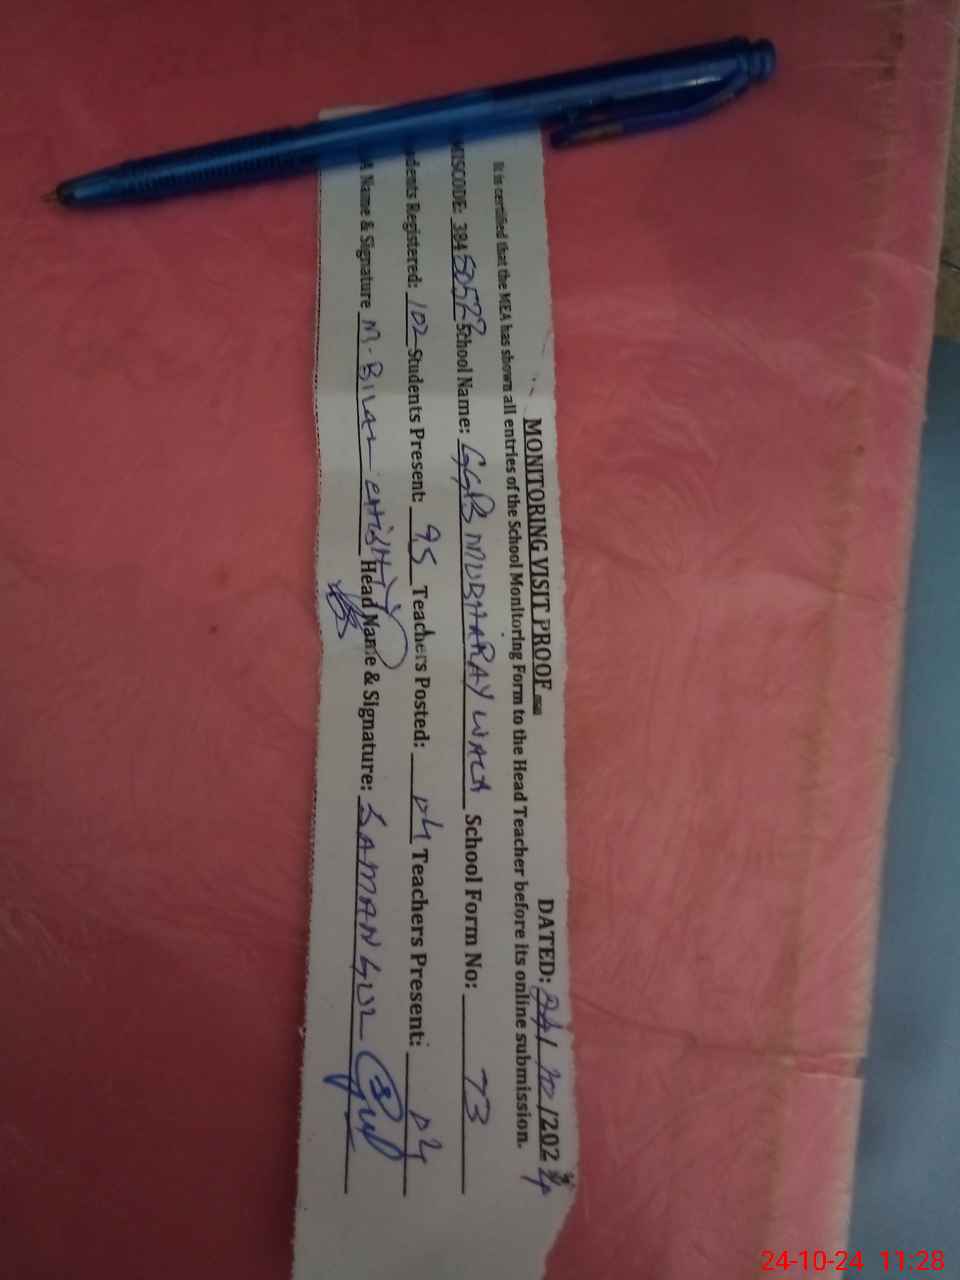 MONITORING VISIT PROOF DATED: 24/10/2024
It is certified that the MEA has shown all entries of the School Monitoring Form to the Head Teacher before its online submission.
MISCODE: 38450522 School Name: GGPS MUBHARAY WALA School Form No: 73
dents Registered: 102 Students Present: 95 Teachers Posted: 04 Teachers Present: 04
A Name & Signature M. BILAL CHISHTY Head Name & Signature: SAMAN GUL
24-10-24 11:28